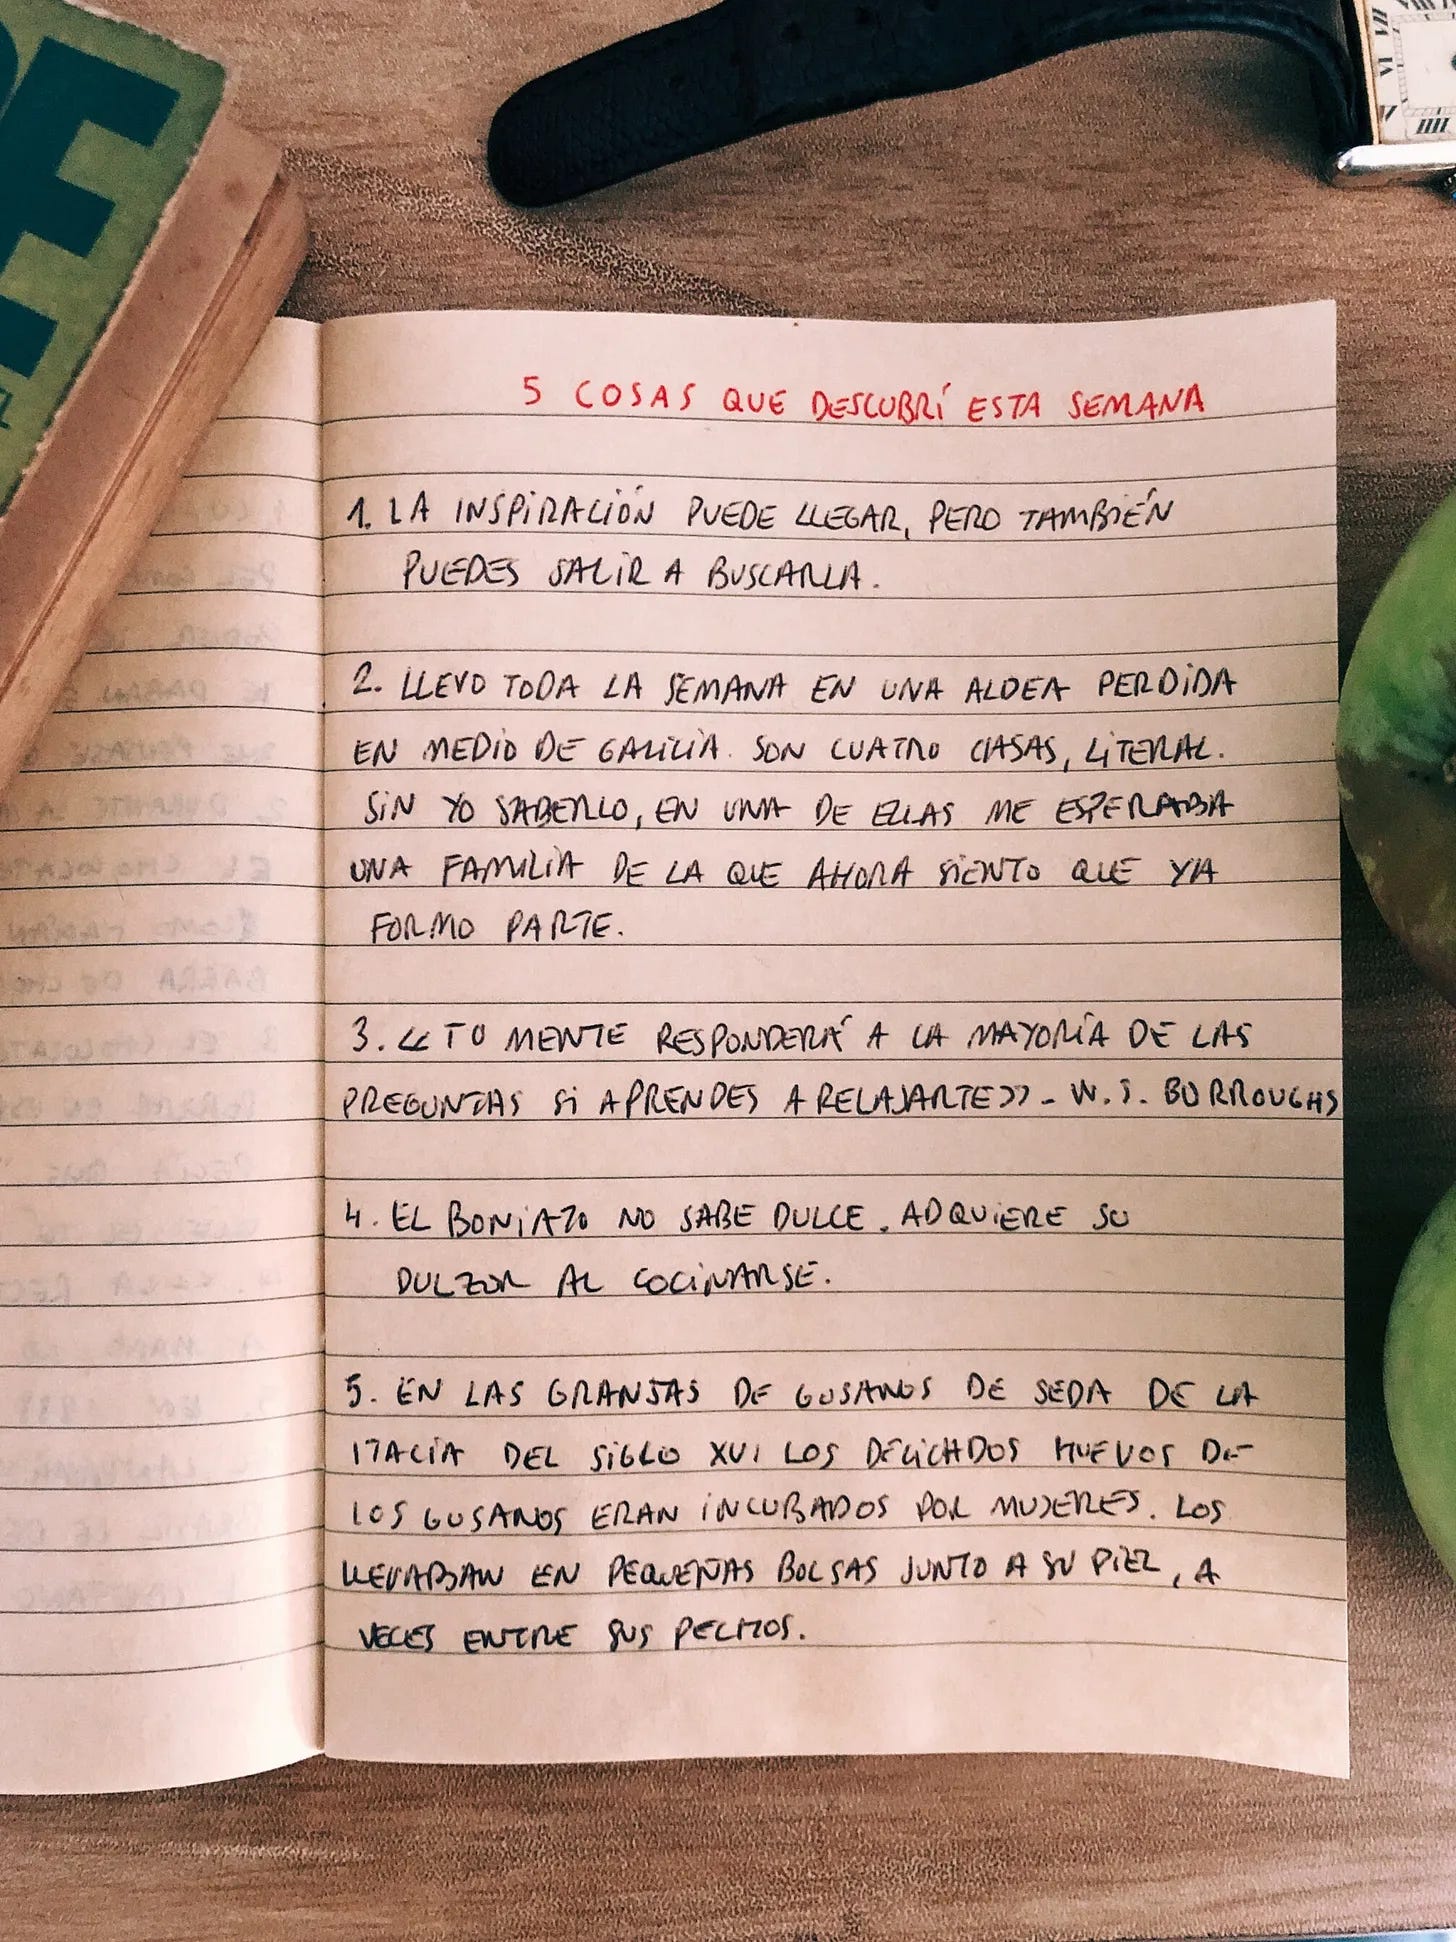 5 COSAS QUE DESCUBRÍ ESTA SEMANA
1. LA INSPIRACIÓN PUEDE LLEGAR, PERO TAMBIÉN
PUEDES SALIR A BUSCARLA.
2. LLEVO TODA LA SEMANA EN UNA ALDEA PERDIDA
EN MEDIO DE GALICIA. SON CUATRO CASAS, LITERAL.
SIN YO SABERLO, EN UNA DE ELLAS ME ESPERABA
UNA FAMILIA DE LA QUE AHORA SIENTO QUE YA
FORMO PARTE.
3. «TU MENTE RESPONDERÁ A LA MAYORÍA DE LAS
PREGUNTAS SI APRENDES A RELAJARTE» - W. S. BURROUGHS
4. EL BONIATO NO SABE DULCE. ADQUIERE SU
DULZOR AL COCINARSE.
5. EN LAS GRANJAS DE GUSANOS DE SEDA DE LA
ITALIA DEL SIGLO XVI LOS DELICADOS HUEVOS DE
LOS GUSANOS ERAN INCUBADOS POR MUJERES. LOS
LLEVABAN EN PEQUEÑAS BOLSAS JUNTO A SU PIEL, A
VECES ENTRE SUS PECHOS.